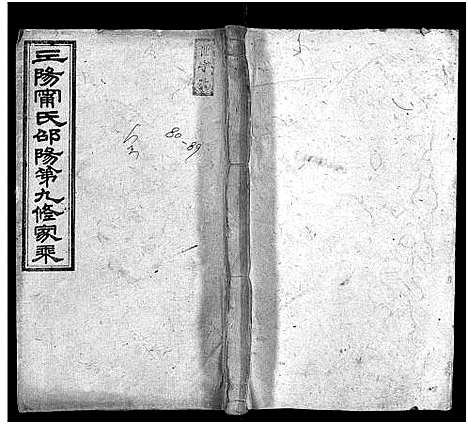 三陽甯氏邵陽第九修家乘
80-89